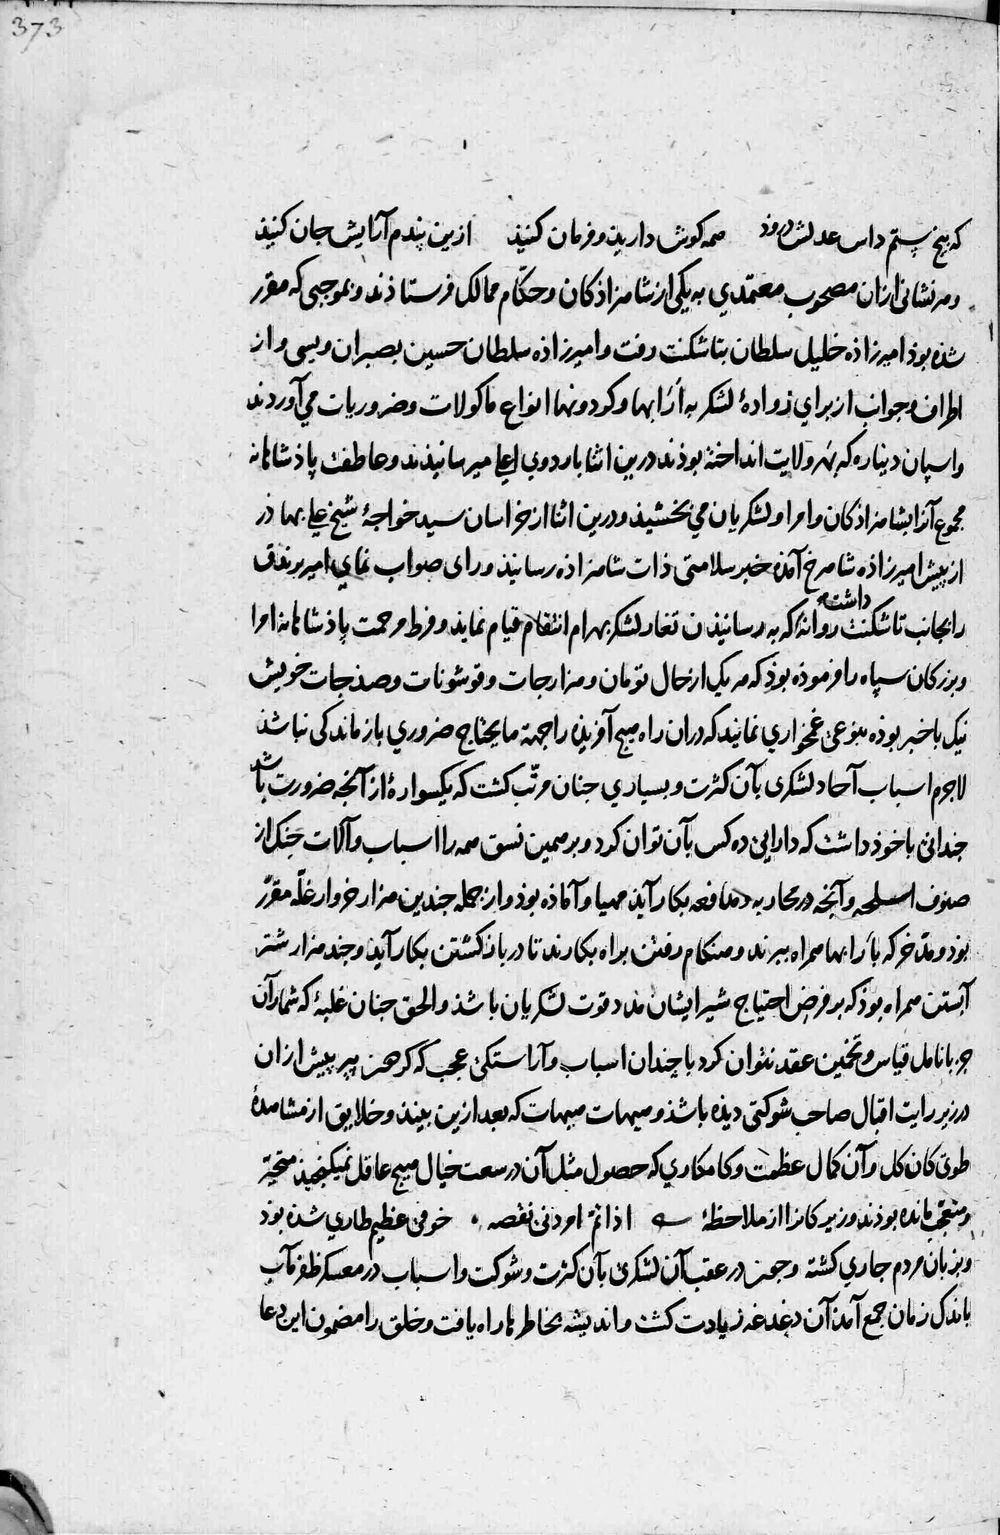 373
که بیخ ستم داس عدلش درود همه کوش دارید و فرمان کنید ازین پندم آسایش جان کنید
و هر نشانی ازان مصحوب معتمدی به یکی از شاهزاذکان و حکّام ممالک فرستاذند و بموجبی که مقرر
شده بوذ امیرزاذه خلیل سلطان بتاشکنت رفت و امیرزاذه سلطان حسین بصبران ویسی و از
اطراف و جوانب از برای زوادهٔ لشکر به اَرَابها و کردونها انواع ماکولات و ضروریات می آوردند
و اسپان که بهر ولایت انداخته بوذند درین اثنا باردوی اعلی میرسانیذند و عاطفت پاذشاهانه
مجموع آنرا بشاهزاذکان و امرا و لشکریان می بخشیذ و درین اثنا از خراسان سید خواجهٔ شیخ علی بهاذر
از پیش امیرزاذه شاهرخ آمذه خبر سلامتی ذات شاهزاذه رسانیذ و رای صواب نمای امیر برندق
را بجانب تاشکنت روانه داشت که به رسانیذن تغار لشکر بهرام انتقام قیام نمایذ و فرط مرحمت پاذشاهانه امرا
و بزرکان سپاه را فرموذه بوذ که هر یک از حال تومان و هزارجات و قوشونات و صذجات خویش
نیک باخبر بوذه بنوعی غمخواری نمایند که دران راه هیچ آفریذه را جهة مایحتاج ضروری بازماندکی نباشذ
لاجرم اسباب آحاد لشکری بآن کثرت و بسیاری جنان مرتّب کشت که یکسوارهٔ از آنجه ضرورت باشذ
جندانی با خوذ داشت که دارایی ده کس بآن توان کرد و بر همین نسق همه را اسباب و آلات جنک از
صنوف اسلحه و آنجه در محاربه و مدافعه بکار آیذ مهیا و آماذه بوذ و از جمله جندین هزار خروار غلّه مقرّر
بوذ و مدّخر که باَرابها همراه ببرند و هنکام رفتن براه بکارند تا در بازکشتن بکار آیذ و جند هزار شتر
آبستن همراه بوذ که بر فرض احتیاج شیر ایشان مدد قوت لشکریان باشذ و الحق جنان غلبهٔ که شمار آن
جز بانامل قیاس و تخمین عقد نتوان کرد با جندان اسباب و آراستکی عجب که کر جرخ پیر پیش ازان
در زیر رایت اقبال صاحب شوکتی دیذه باشذ و هیهات هیهات که بعد ازین بینذ و خلایق از مشاهدهٔ
طوی کان کل و آن کمال عظمت و کامکاری که حصول مثل آن در سعت خیال هیچ عاقل نمیکنجیذ متحیّر
و متعجّب مانده بوذند و زیرکانرا از ملاحظهٔ اذا تمّ امر دنی نقصه خوفی عظیم طاری شذه بوذ
و بر زبان مردم جاری کشته و جون در عقب آن لشکری بآن کثرت و شوکت و اسباب در معسکر ظفرمآب
باندک زمان جمع آمذ آن دغدغه زیادت کشت و اندیشه بخاطرها راه یافت و خلق را مضمون این دعا